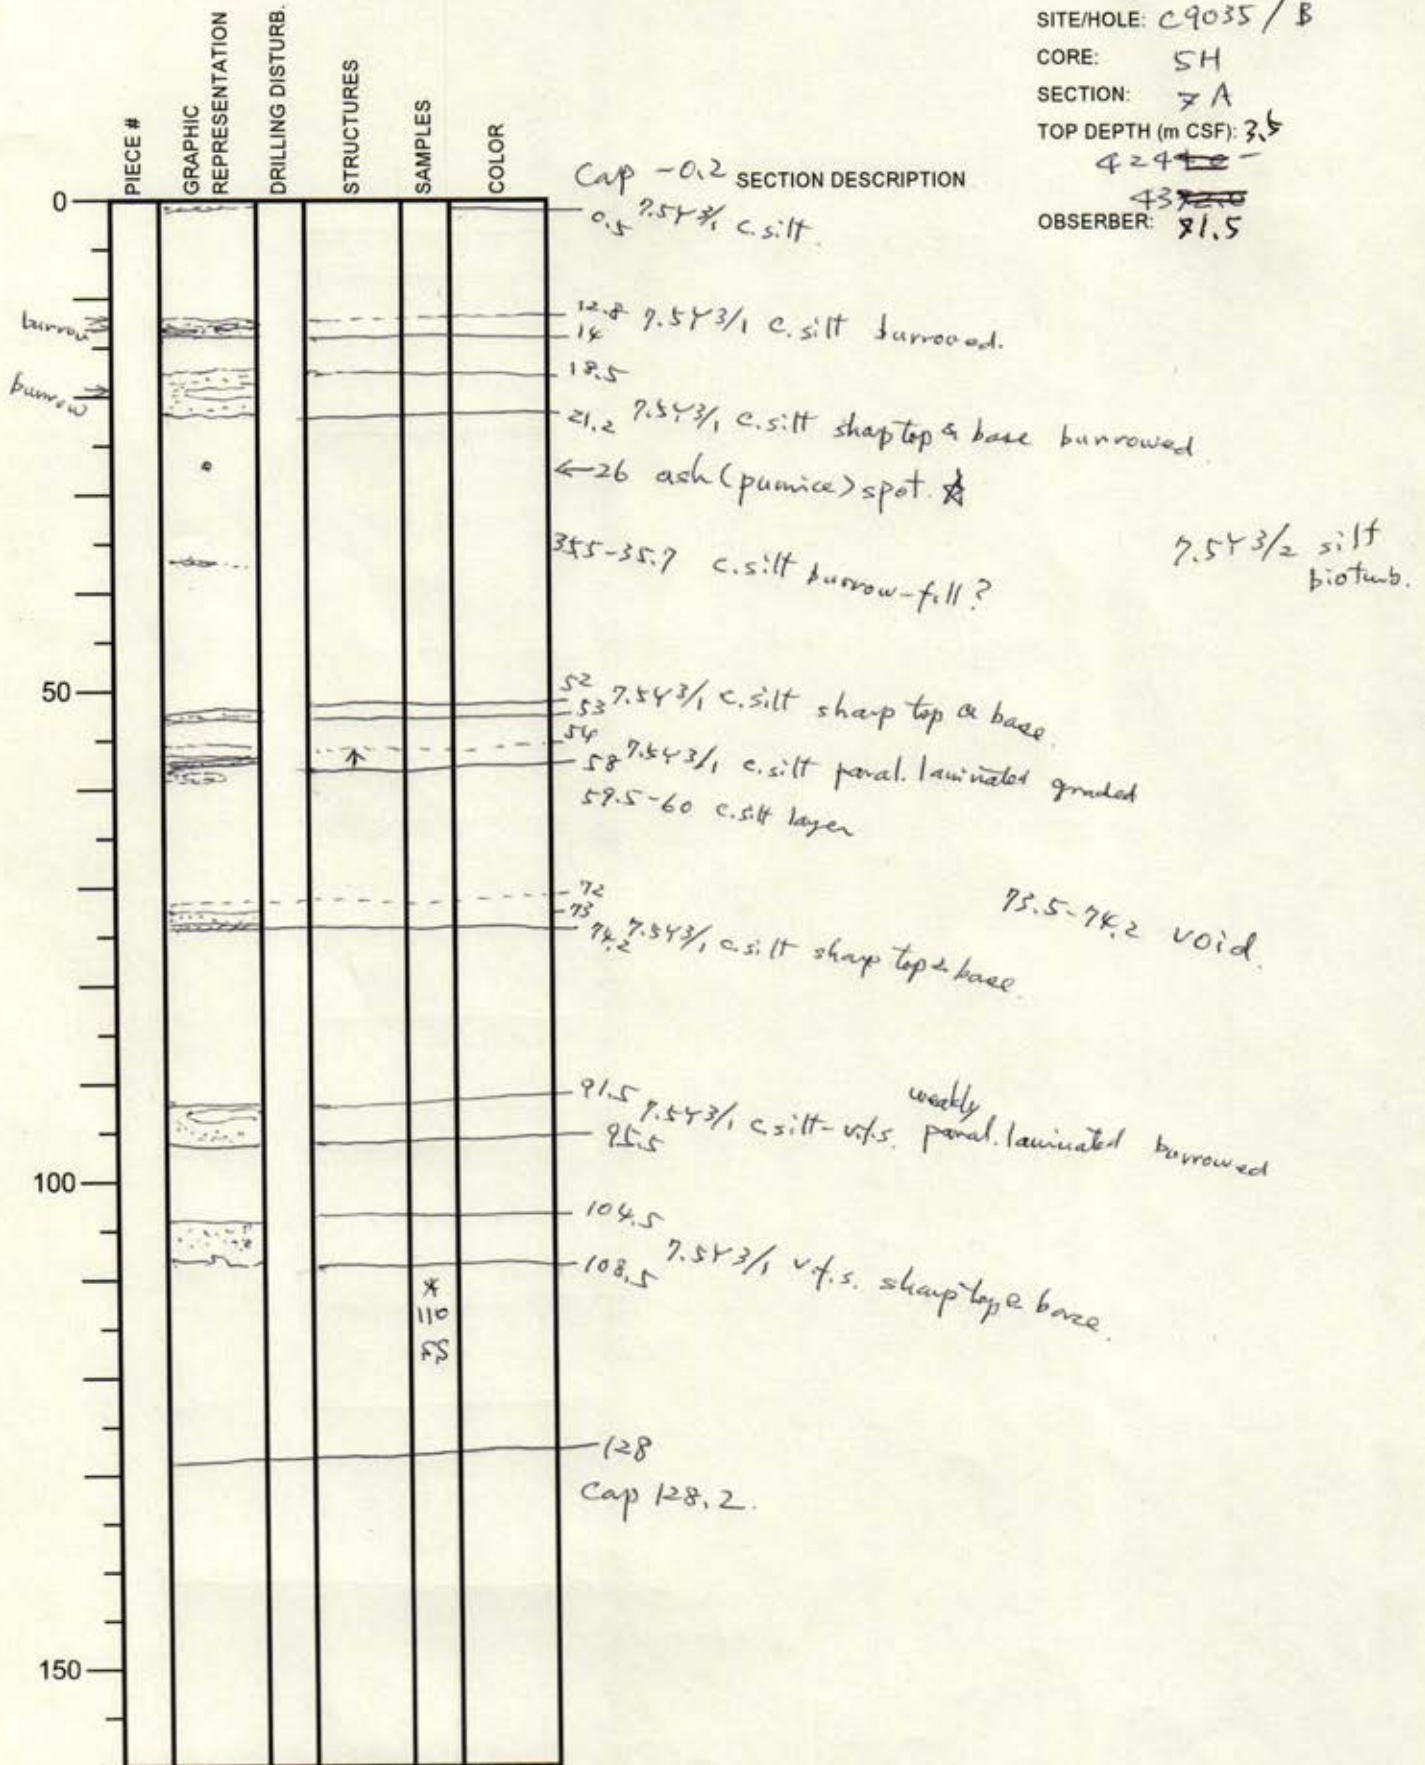 SITE/HOLE: C9035 / B
CORE: 5H
SECTION: 7A
TOP DEPTH (m CSF): 3.5
OBSERBER: 1.5
PIECE #
GRAPHIC REPRESENTATION
DRILLING DISTURB.
STRUCTURES
SAMPLES
COLOR
Cap -0.2 SECTION DESCRIPTION
0
0.5 7.5Y3/1 c.silt.
burrow
12.8 7.5Y3/1 c.silt burrowed.
14
18.5
burrow
21.2 7.5Y3/1 c.silt shap top & base burrowed
←26 ash (pumice) spot. ☆
35.5-35.7 c.silt burrow-fill?
7.5Y3/2 silt
bioturb.
50
52 7.5Y3/1 c.silt sharp top & base.
53
54
58 7.5Y3/1 c.silt paral. laminated graded
59.5-60 c.silt layer
72
73
74.2 7.5Y3/1 c.silt sharp top & base.
73.5-74.2 void.
91.5 7.5Y3/1 c.silt-v.f.s. weakly paral. laminated burrowed
95.5
100
104.5
108.5 7.5Y3/1 v.f.s. sharp top & base.
*
110
SS
128
Cap 128.2.
150